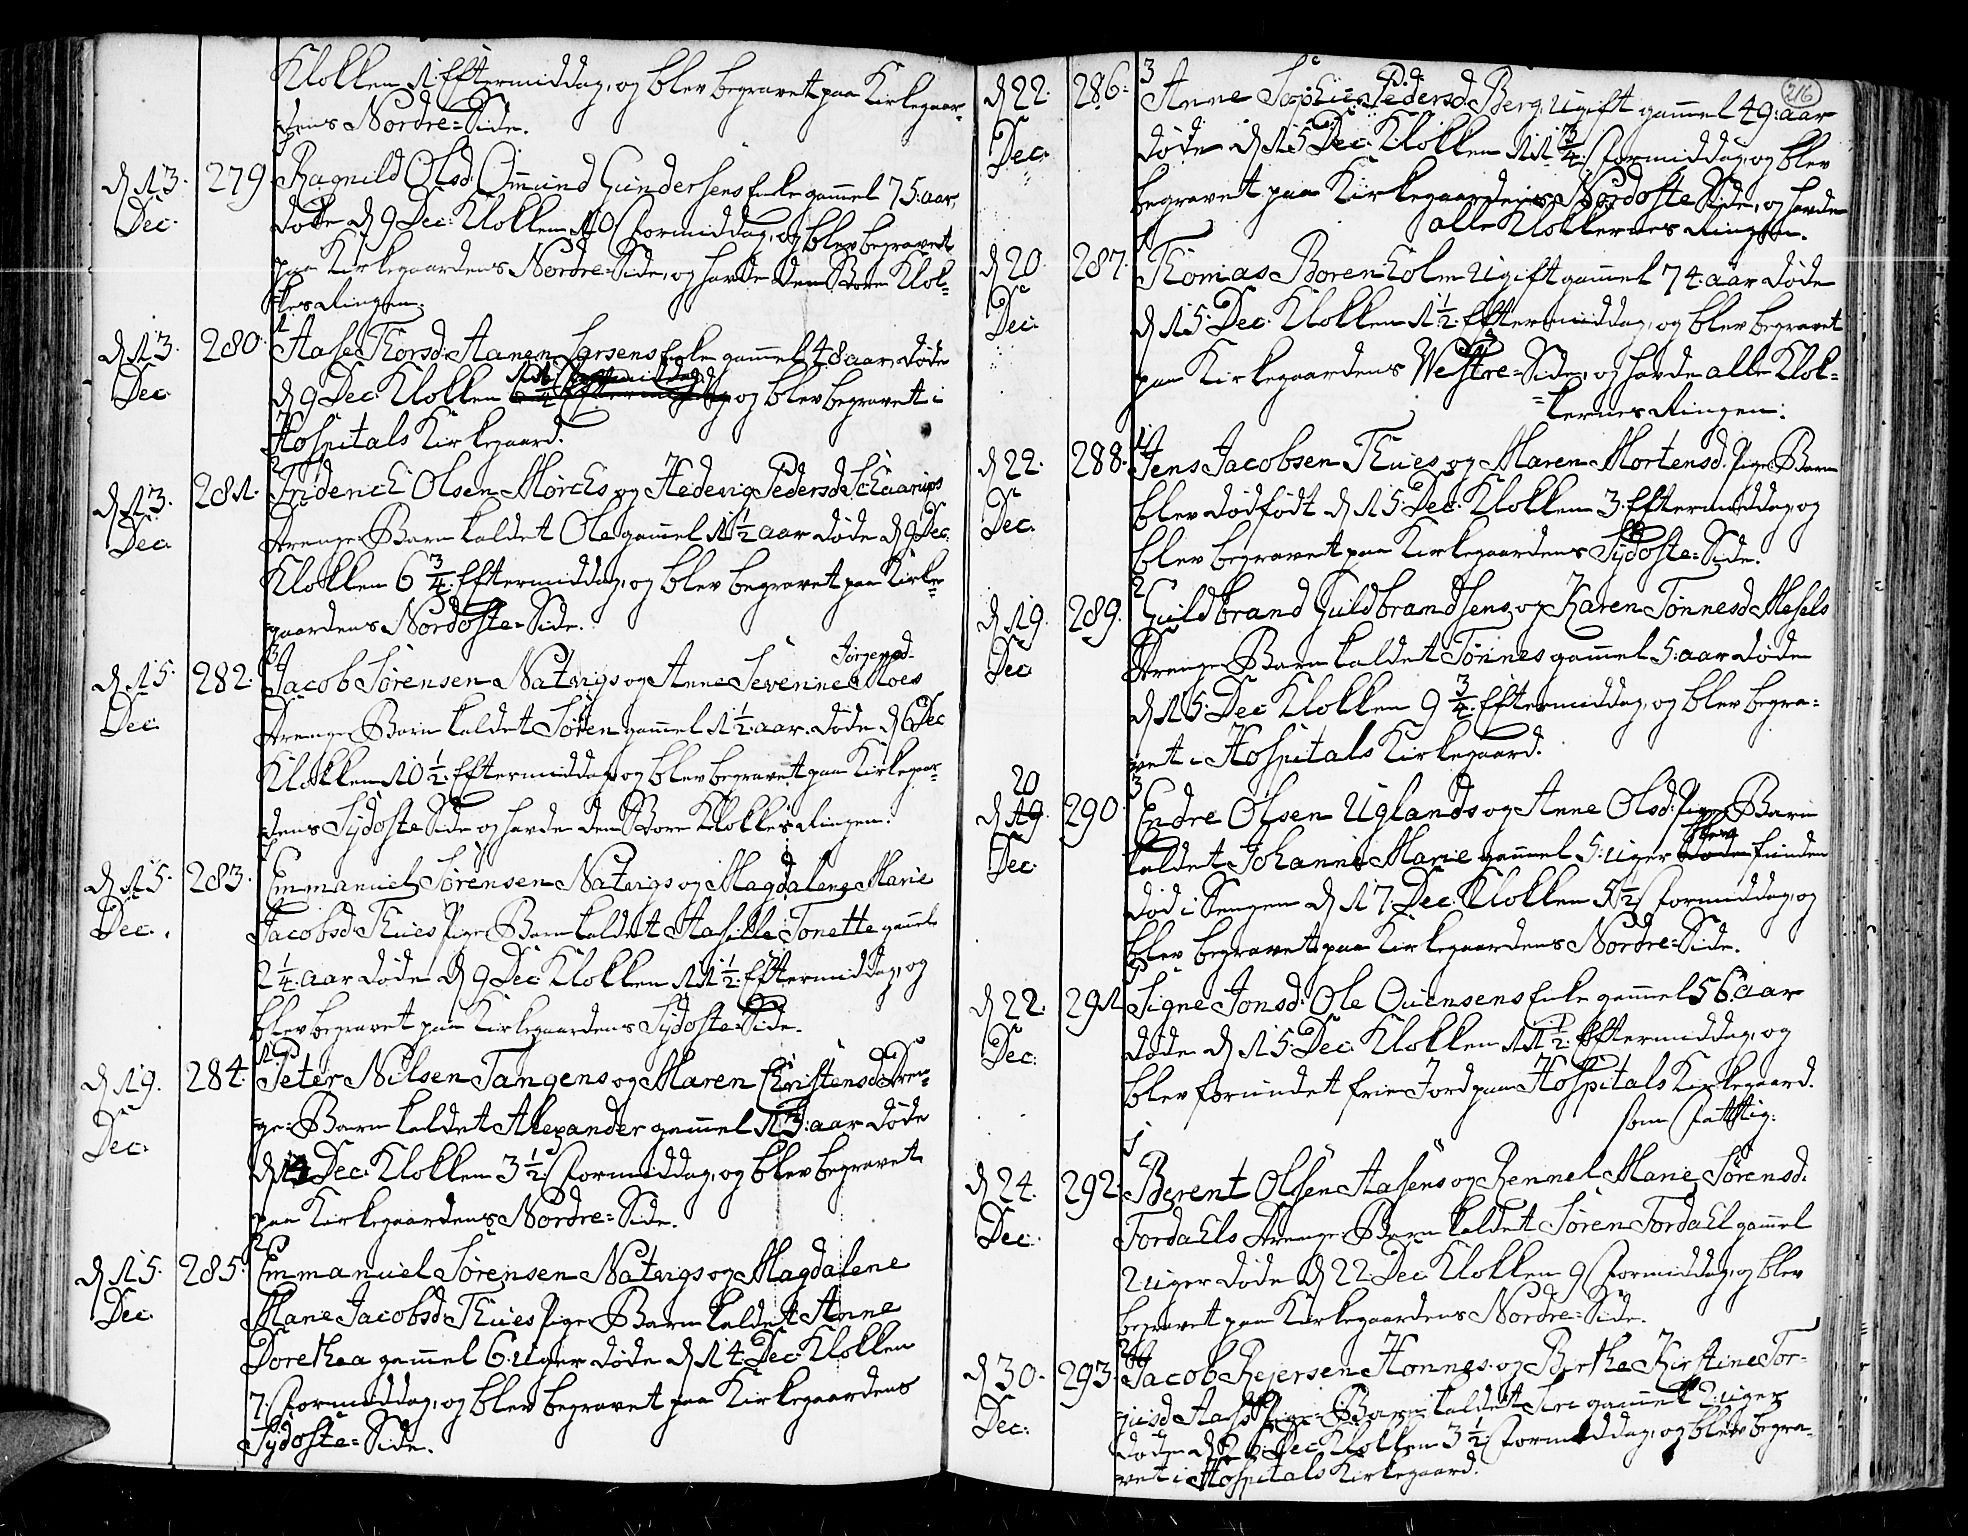 Klokken 1. Eftermiddag, og blev begravet paa Kirkegaar-
dens Nordre-Side.
d 13. Dec. 279 Ragnild Olsd: Omund Gundersens Enke gammel 75. aar,
døde d 9 Dec: Klokken 10 Formiddag, og blev begravet
paa Kirkegaardens Nordre-Side, og havde den Store Klok-
kes Ringen.
d 13. Dec. 280. Aase Thorsd: Aanen Larsens Enke gammel 48 aar døde
d 9 Dec. Klokken og blev begravet i
Hospitals Kirkegaard.
d 13. Dec. 281. Friderich Olsen Mørchs og Hedevig Pedersd: Schaarups
Drenge Barn kaldet Ole gammel 1 1/2 aar døde d 9 Dec.
Klokken 6 3/4. Eftermiddag, og blev begravet paa Kirke-
gaardens Nordoste-Side.
Jörgensd.
d 15. Dec: 282. Jacob Sørensen Natvigs og Anne Severine Moes
Drenge Barn kaldet Søren gammel 1 1/2. aar. døde d 6 Dec
Klokken 10 1/2. Eftermiddag og blev begravet paa Kirkegar-
dens Sydoste Side og havde den Store Klokkes Ringen.
d 15. Dec. 283. Emmanuel Sørensen Natvigs og Magdalene Marie
Jacobsd: Thues Pige Barn kaldet Aasille Tonette gammel
2 1/4. aar døde d 9 Dec Klokken 11 1/2. Eftermiddag, og
blev begravet paa Kirkegaardens Sydoste Side.
d 19. Dec. 284. Peter Nilsen Tangens og Maren Christensd: Dren-
ge Barn kaldet Alexander gammel 13. aar døde
d 14 Dec. Klokken 3 1/2. Formiddag, og blev begravet
paa Kirkegaardens Nordre-Side.
d 15. Dec. 285. Emmanuel Sørensen Natvigs og Magdalene
Marie Jacobsd: Thues Pige Barn kaldet Anne
Dorethea gammel 6. uger døde d 14. Dec: Klokken
7. Formiddag, og blev begravet paa Kirkegaardens
Sydoste-Side.
216
d 22. Dec. 286. Anne Sophie Pedersd Berg, Ugift gammel 49. aar
døde d 15 Dec: Klokken 11 3/4. Formiddag, og blev
begravet paa Kirkegaardens Nordoste Side, og havde
alle Klokkernes Ringen.
d 20 Dec. 287. Thomas Borenholm Ugift gammel 74. aar døde
d 15. Dec: Klokken 1 1/2. Eftermiddag, og blev begravet
paa Kirkegaardens Westre-Side, og havde alle Klok-
kernes Ringen.
d 22. Dec. 288. Jens Jacobsen Thues og Maren Mortensd. Pige Barn
blev dødfødt d 15 Dec: Klokken 3. Eftermiddag, og
blev begravet paa Kirkegaardens Sydoste-Side.
d 19. Dec 289. Guldbrand Guldbrandsens og Karen Tønnesd. Mesels
Drenge Barn kaldet Tønnes gammel 5. aar døde
d 15. Dec Klokken 9 3/4. Eftermiddag, og blev begra-
vet i Hospitals Kirkegaard.
20
d 19. Dec. 290. Endre Olsen Uglands og Anne Olsd: Pige Barn
kaldet Johanne Marie gammel 5. uger døde funden
død i Sengen d 17. Dec. Klokken 5 1/2 Formiddag, og
blev begravet paa Kirkegaardens Nordre-Side.
d 22. Dec. 291 Signe Jonsd: Ole Ouensens Enke gammel 56. aar
døde d 15. Dec: Klokken 11 1/2. Eftermiddag, og
blev forundet frie Jord paa Hospitals Kirkegaard.
som Fattig.
d 24. Dec. 292. Berent Olsen Aasens og Rennel Marie Sørensd.
Fordahls Drenge Barn kaldet Søren Fordahl gammel
2 uger døde d 22 Dec Klokken 9 Formiddag, og blev
begravet paa Kirkegaardens Nordre-Side.
d 30. Dec. 293. Jacob Rejersen Honnes og Birthe Kirstine Tor-
juesd Aas Pige Barn kaldet Siri gammel 2. uger
døde d 26. Dec Klokken 3 1/2. Formiddag, og blev begra-
vet i Hospitals Kirkegaard.